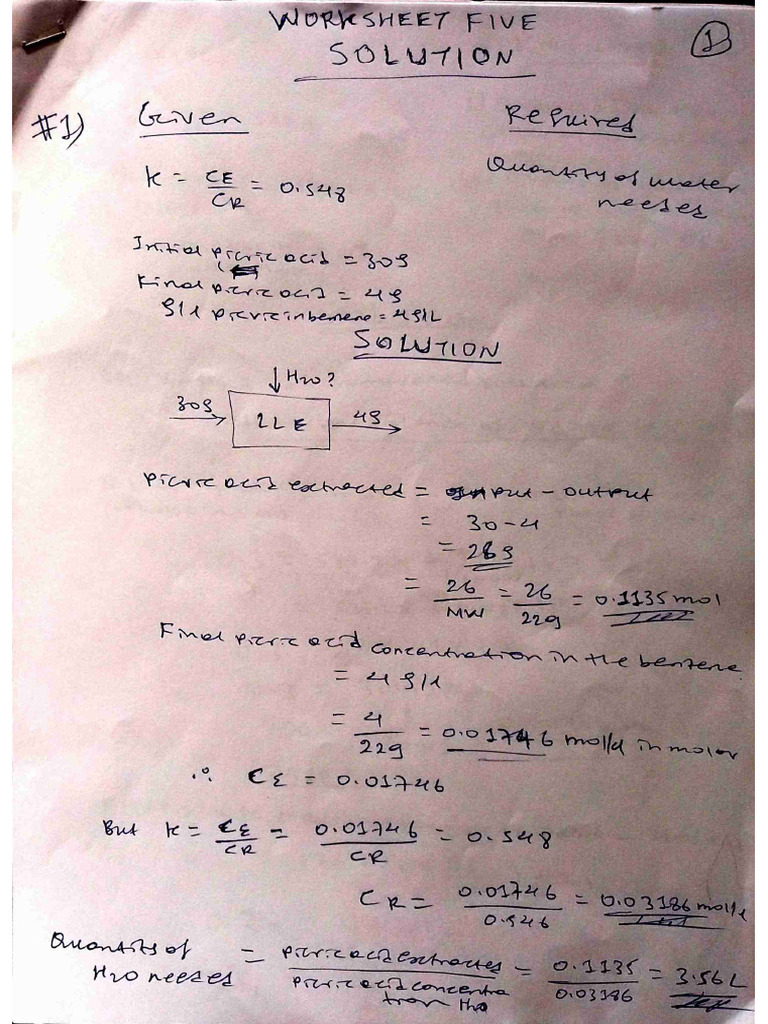 WORKSHEET FIVE
SOLUTION
1
#1) Given Required
K = CE/CR = 0.548
Quantity of water
needed
Initial picric acid = 30g
Final picric acid = 4g
g/l picric in benzene = 4g/L
SOLUTION
H2O?
30g LLE 4g
picric acid extracted = input - output
= 30-4
= 26g
= 26/MW = 26/229 = 0.1135 mol
Final picric acid concentration in the benzene.
= 4 g/l
= 4/229 = 0.01746 mol/l in molar
∴ CE = 0.01746
But K = CE/CR = 0.01746/CR = 0.548
CR = 0.01746/0.546 = 0.03186 mol/l
Quantity of H2O needed = picric acid extracted/picric acid concentration H2O = 0.1135/0.03186 = 3.56 L